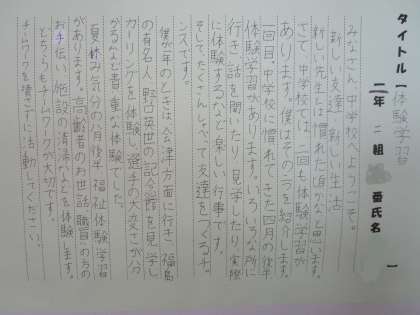 タイトル「体験学習
二年 二組 番氏名
みなさん中学校へようこそ。
新しい友達、新しい生活
新しい先生は慣れた頃かなと思います。
さて、中学校では、二回も体験学習が
あります。僕はその二つを紹介します。
一回目、中学校に慣れてきた四月の後半
体験学習があります。いろいろな所に
行き話を聞いたり見学したり、実際
に体験するなど楽しい行事です。
そして、たくさんしゃべって友達をつくるチャ
ンスです。
僕が一年のときは会津方面に行き福島
の有名人野口英世の記念館を見学し
カーリングを体験し選手の大変さが分
かるなど貴重な体験でした。
夏休み気分の八月後半福祉体験学習
があります。高齢者のお世話、職員の方の
お手伝い、施設の清掃などを体験します。
どちらもチームワークが大切です。
チームワークを崩さずに活動してください。